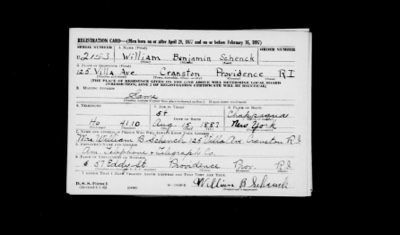 REGISTRATION CARD—(Men born on or after April 28, 1877 and on or before February 16, 1897)
SERIAL NUMBER 1. NAME (Print) ORDER NUMBER
U 2153 William Benjamin Schenck
2. PLACE OF RESIDENCE (Print)
125 Villa Ave. Cranston Providence R I
(THE PLACE OF RESIDENCE GIVEN ON THE LINE ABOVE WILL DETERMINE LOCAL BOARD
JURISDICTION; LINE 2 OF REGISTRATION CERTIFICATE WILL BE IDENTICAL)
3. MAILING ADDRESS
Same
4. TELEPHONE 5. AGE IN YEARS 6. PLACE OF BIRTH
Ho 4110 Aug 15 1887 New York
7. NAME AND ADDRESS OF PERSON WHO WILL ALWAYS KNOW YOUR ADDRESS
Mrs William B Schenck 125 Villa Ave Cranston R I
8. EMPLOYER'S NAME AND ADDRESS
Am. Telephone & Telegraph Co.
9. PLACE OF EMPLOYMENT OR BUSINESS
Eddy St Providence Prov. R I
I AFFIRM THAT I HAVE VERIFIED ABOVE ANSWERS AND THAT THEY ARE TRUE.
D. S. S. Form 1
William B Schenck